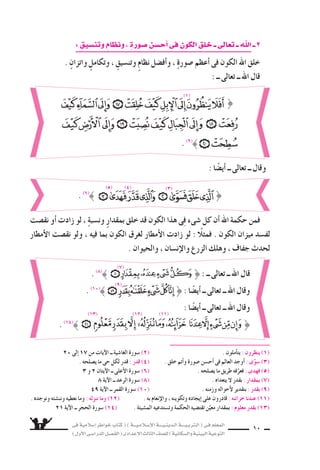 ٢ـ الله ـ تعالى ـ خلق الكون فى أحسن صورة ، ونظام وتنسيق :
خلق الله الكون فى أعظم صورةٍ ، وأفضل نظامٍ وتنسيقٍ ، وتكاملٍ واتزانٍ .
قال الله ـ تعالى ـ :
﴿ أَفَلَا يَنظُرُونَ (١) إِلَى ٱلْإِبِلِ كَيْفَ خُلِقَتْ ١٧ وَإِلَى ٱلسَّمَآءِ كَيْفَ
رُفِعَتْ ١٨ وَإِلَى ٱلْجِبَالِ كَيْفَ نُصِبَتْ ١٩ وَإِلَى ٱلْأَرْضِ كَيْفَ
سُطِحَتْ ٢٠ ﴾ (٢) .
وقال ـ تعالى ـ أيضًا :
﴿ ٱلَّذِى خَلَقَ فَسَوَّىٰ (٣) ٢ وَٱلَّذِى قَدَّرَ (٤) فَهَدَىٰ (٥) ٣ ﴾ (٦) .
فمن حكمة الله أن كل شىء فى هذا الكون قد خلق بمقدارٍ ونسبة ، لو زادت أو نقصت
لفسد ميزان الكون . فمثلًا : لو زادت الأمطار لغرق الكون بما فيه ، ولو نقصت الأمطار
لحدث جفاف ، وهلك الزرع والإنسان ، والحيوان .
قال الله ـ تعالى ـ : ﴿ وَكُلُّ شَىْءٍ عِندَهُۥ بِمِقْدَارٍ (٧) ﴾ (٨) .
وقال الله ـ تعالى ـ أيضًا : ﴿ إِنَّا كُلَّ شَىْءٍ خَلَقْنَٰهُ بِقَدَرٍ (٩) ﴾ (١٠) .
وقال الله ـ تعالى ـ أيضًا :
﴿ وَإِن مِّن شَىْءٍ إِلَّا عِندَنَا خَزَآئِنُهُۥ (١١) وَمَا نُنَزِّلُهُۥٓ (١٢) إِلَّا بِقَدَرٍ مَّعْلُومٍ (١٣) ﴾ (١٤) .
(١) ينظرون : يتأملون .
(٢) سورة الغاشية ـ الآيات من ١٧ إلى ٢٠
(٣) سوّى : أوجد العالم فى أحسن صورة وأتم خلق .
(٤) قدر : قدر لكل حى ما يصلحه .
(٥) فهدى : فعرّفه طريق ما يصلحه .
(٦) سورة الأعلى ـ الآيتان ٢ و ٣
(٧) بمقدار : بقدر لا يتعداه .
(٨) سورة الرعد ـ الآية ٨
(٩) بقدر : بتقدير لأحواله وزمنه .
(١٠) سورة القمر ـ الآية ٤٩
(١١) عندنا خزائنه : قادرون على إيجاده وتكوينه ، والإنعام به .
(١٢) وما ننزله : وما نعطيه وننشئه ونوجده .
(١٣) بقدر معلوم : بمقدار معيّن تقتضيه الحكمة وتستدعيه المشيئة .
(١٤) سورة الحجر ـ الآية ٢١
١٠
المعلم فى ( التربيــة الدينيــة الإسلاميــة ) ( كتاب خواطر إسلامية فى
التوعية البيئية والسكانية ) للصف الثالث الإعدادى ( الفصل الدراسى الأول )